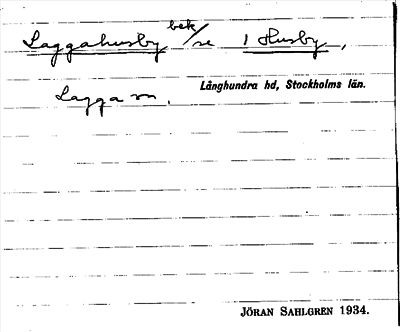 Laggahusby bek/se 1 Husby,
Långhundra hd, Stockholms län.
Lagga sn.
JÖRAN SAHLGREN 1934.